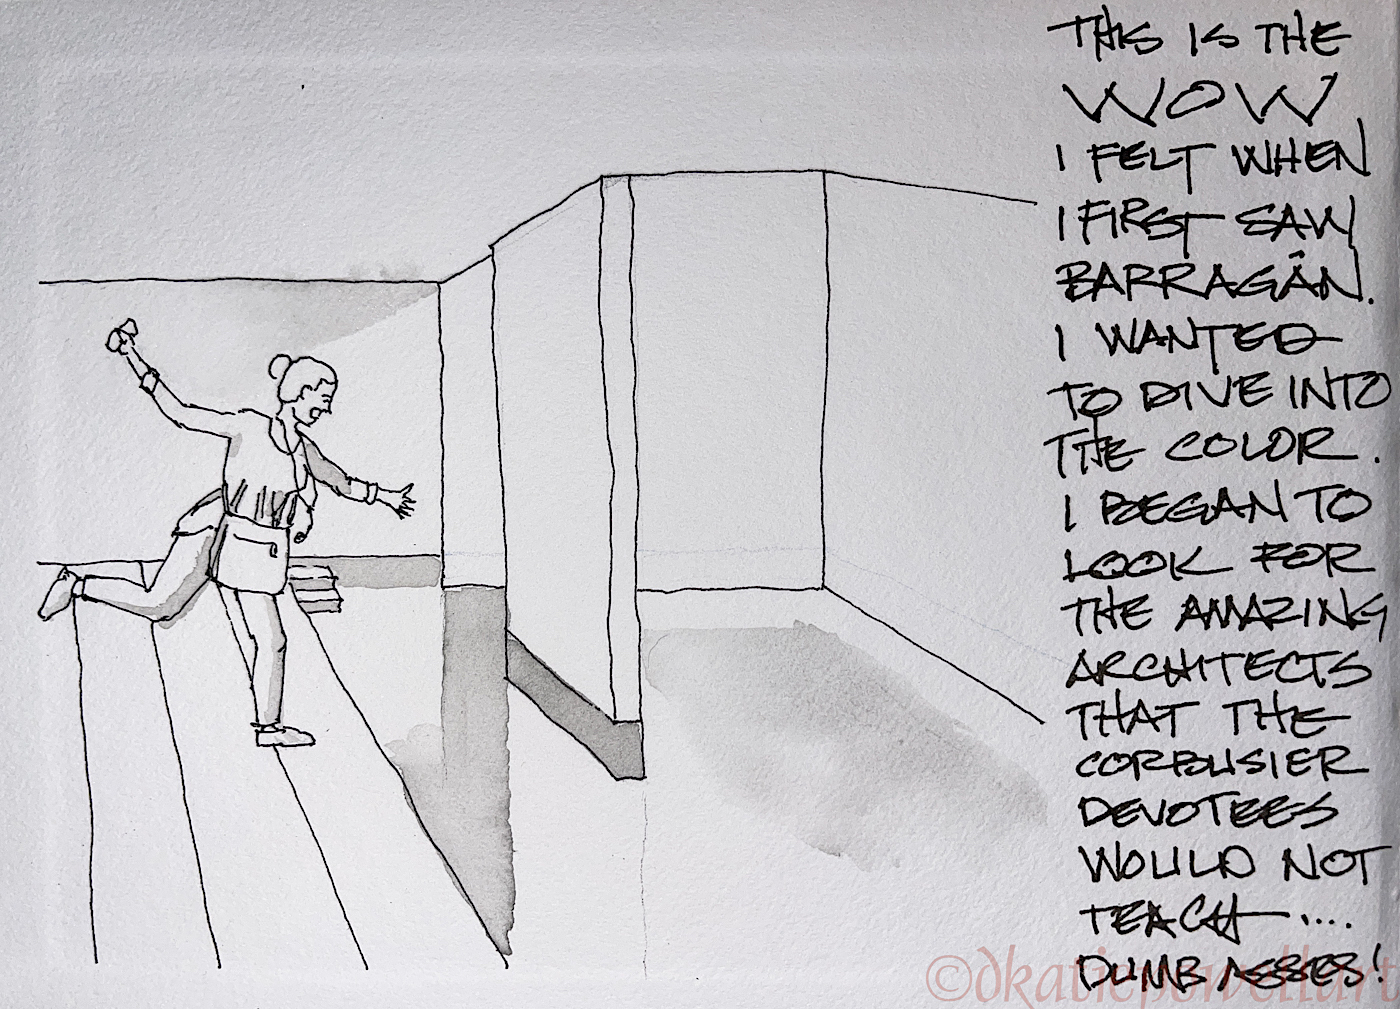 THIS IS THE
WOW
I FELT WHEN
I FIRST SAW
BARRAGÁN.
I WANTED
TO DIVE INTO
THE COLOR.
I BEGAN TO
LOOK FOR
THE AMAZING
ARCHITECTS
THAT THE
CORBUSIER
DEVOTEES
WOULD NOT
TEACH....
DUMB ASSES!
©dkatiepowellart